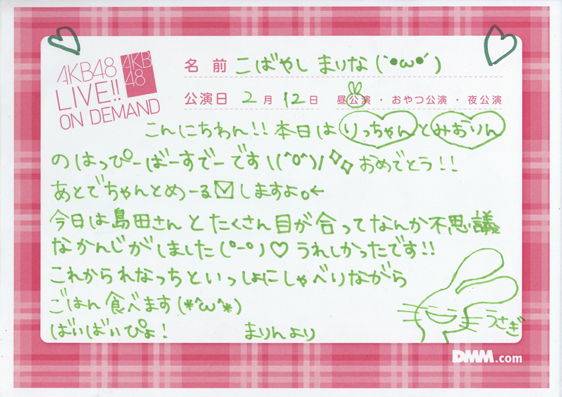 AKB48
LIVE!!
ON DEMAND
AKB
48
名前 こばやし まりな (`•ω•´)
公演日 2月 12日 昼公演・おやつ公演・夜公演
こんにちわん!! 本日は りっちゃん と みおりん
のはっぴーばーすでーです \(^o^)/ おめでとう!!
あとでちゃんとめーる✉しますよ。←
今日は島田さんとたくさん目が合ってなんか不思議
なかんじがしました (°-°) ♡ うれしかったです!!
これかられなっちといっしょにしゃべりながら
ごはん食べます (*^ω^*)
ばいばいぴよ! まりんより
うさぎ
DMM.com